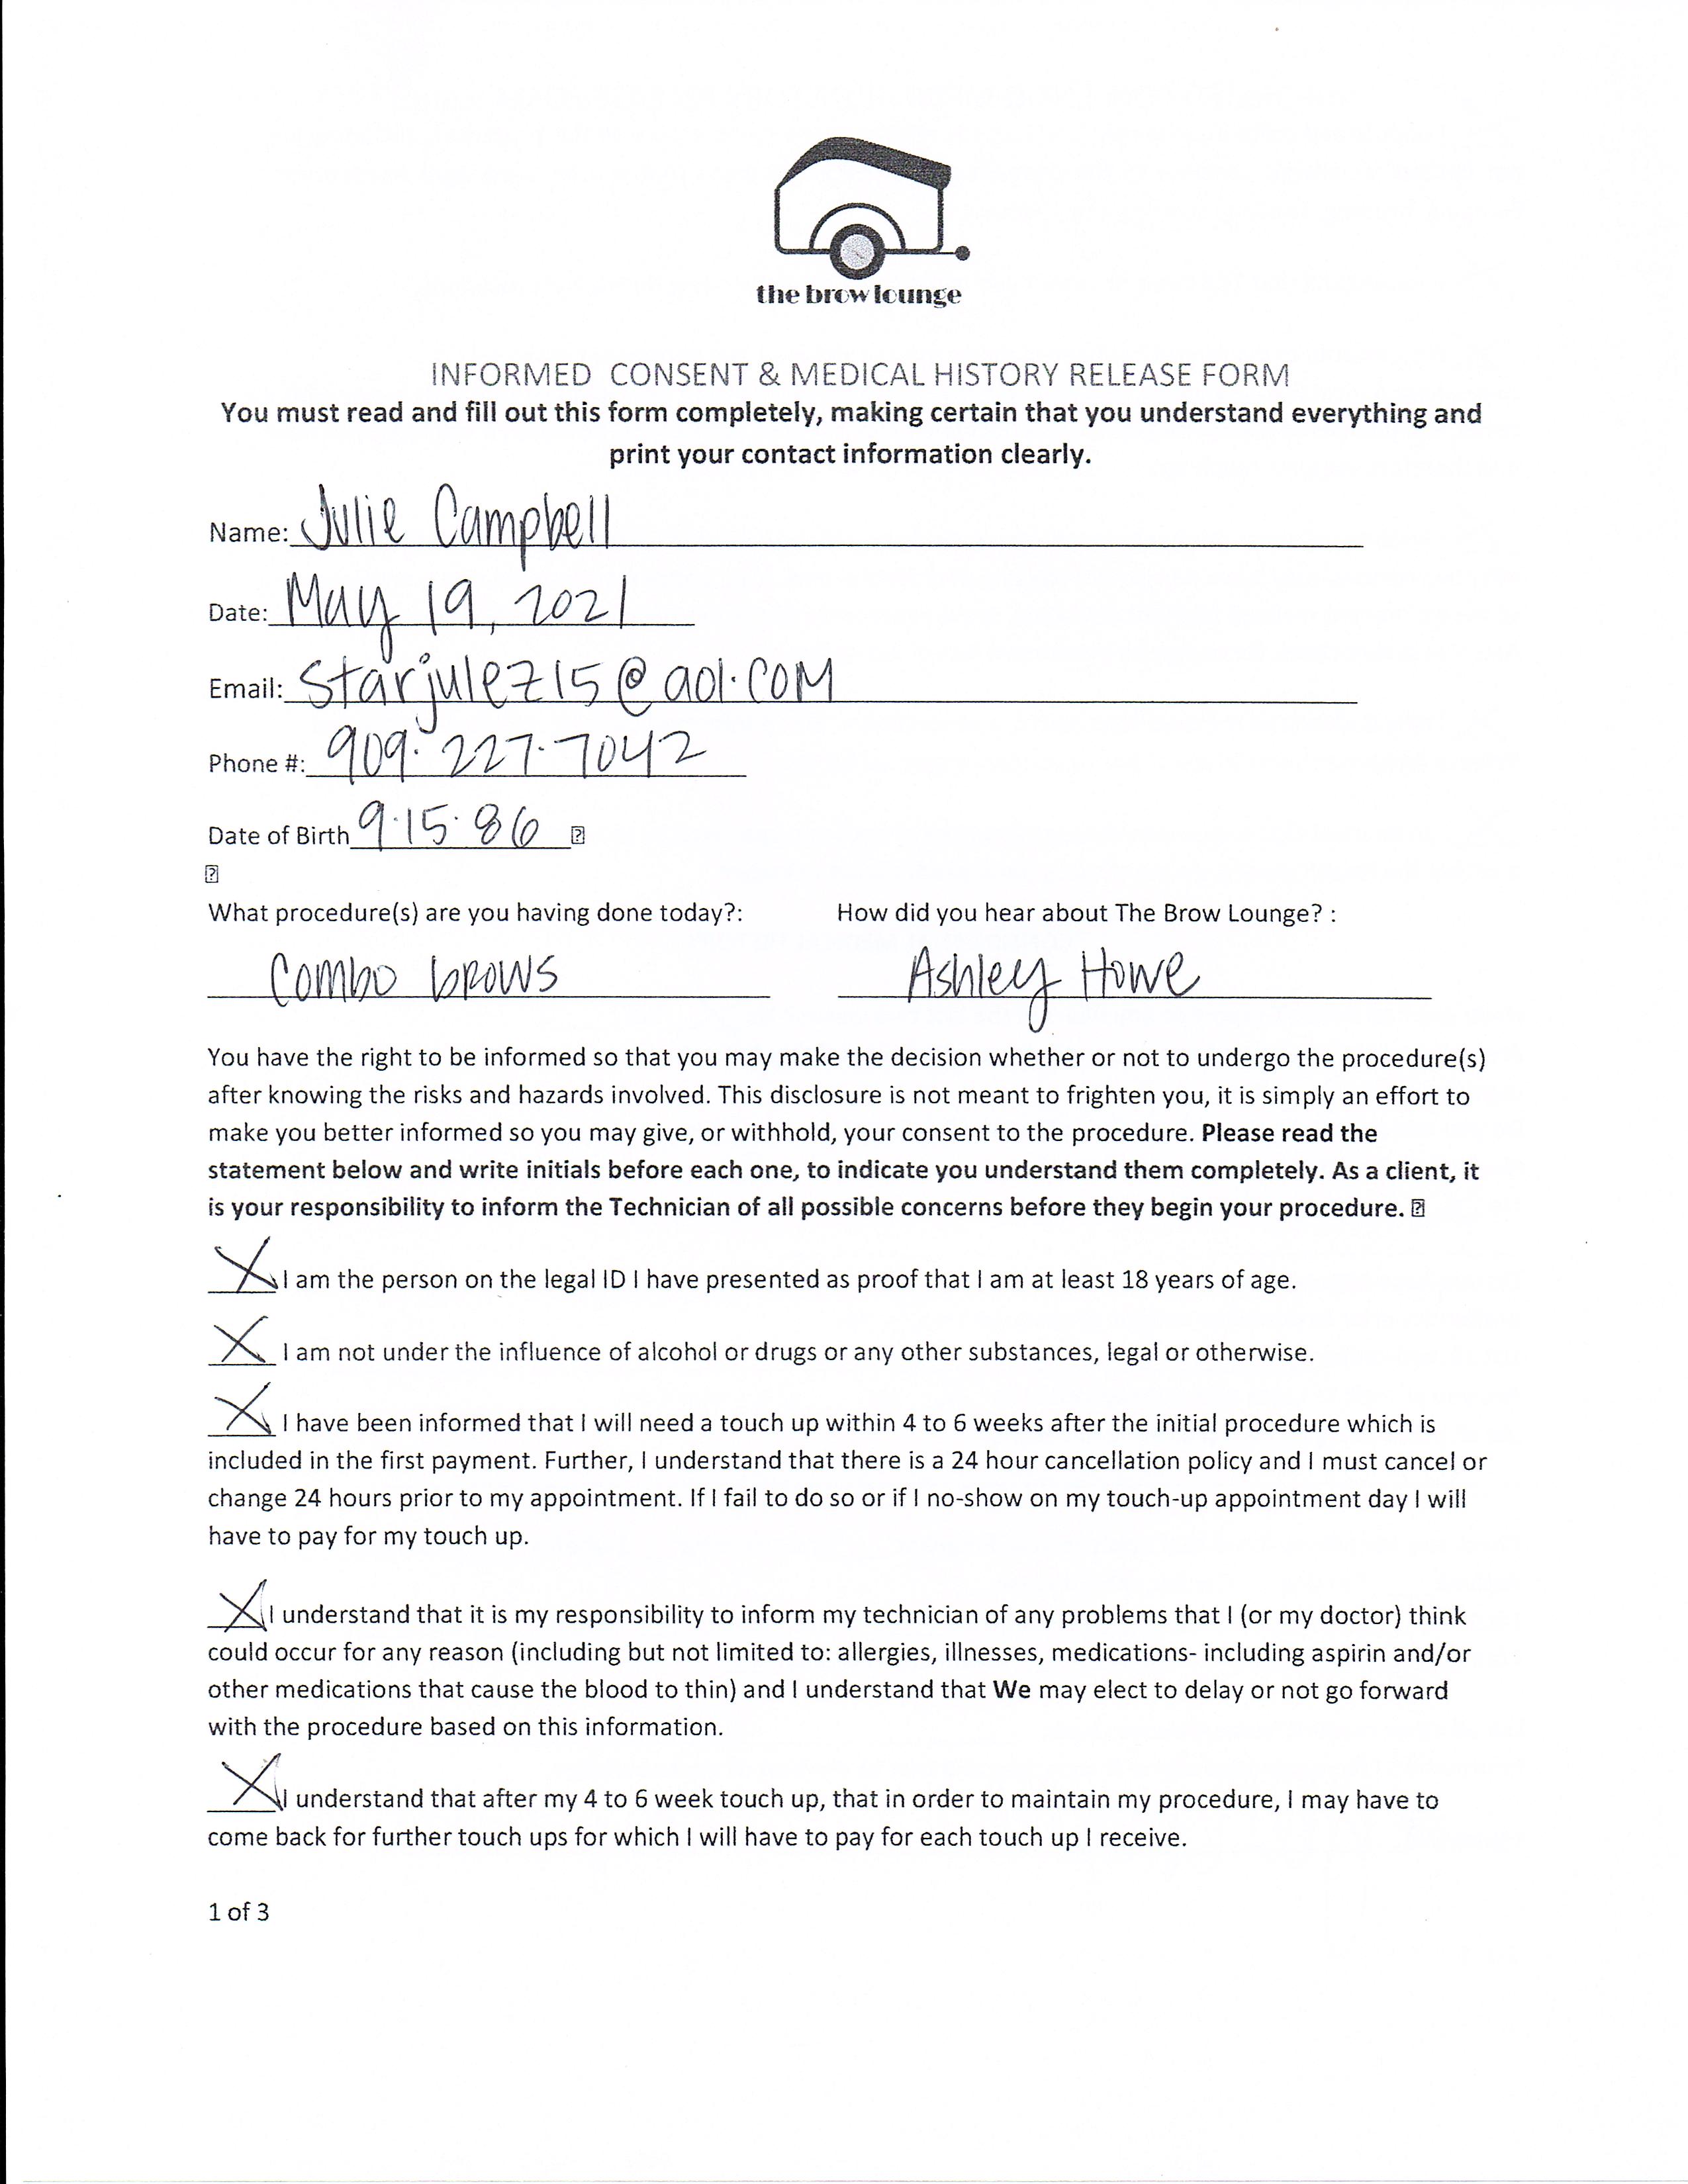 the brow lounge
INFORMED CONSENT & MEDICAL HISTORY RELEASE FORM
You must read and fill out this form completely, making certain that you understand everything and
print your contact information clearly.
Name: Julie Campbell
Date: May 19, 2021
Email: starjulez15@aol.com
Phone #: 909.227.7042
Date of Birth 9.15.86
What procedure(s) are you having done today?: How did you hear about The Brow Lounge? :
Combo brows Ashley Howe
You have the right to be informed so that you may make the decision whether or not to undergo the procedure(s)
after knowing the risks and hazards involved. This disclosure is not meant to frighten you, it is simply an effort to
make you better informed so you may give, or withhold, your consent to the procedure. Please read the
statement below and write initials before each one, to indicate you understand them completely. As a client, it
is your responsibility to inform the Technician of all possible concerns before they begin your procedure.
X I am the person on the legal ID I have presented as proof that I am at least 18 years of age.
X I am not under the influence of alcohol or drugs or any other substances, legal or otherwise.
X I have been informed that I will need a touch up within 4 to 6 weeks after the initial procedure which is
included in the first payment. Further, I understand that there is a 24 hour cancellation policy and I must cancel or
change 24 hours prior to my appointment. If I fail to do so or if I no-show on my touch-up appointment day I will
have to pay for my touch up.
X I understand that it is my responsibility to inform my technician of any problems that I (or my doctor) think
could occur for any reason (including but not limited to: allergies, illnesses, medications- including aspirin and/or
other medications that cause the blood to thin) and I understand that We may elect to delay or not go forward
with the procedure based on this information.
X I understand that after my 4 to 6 week touch up, that in order to maintain my procedure, I may have to
come back for further touch ups for which I will have to pay for each touch up I receive.
1 of 3